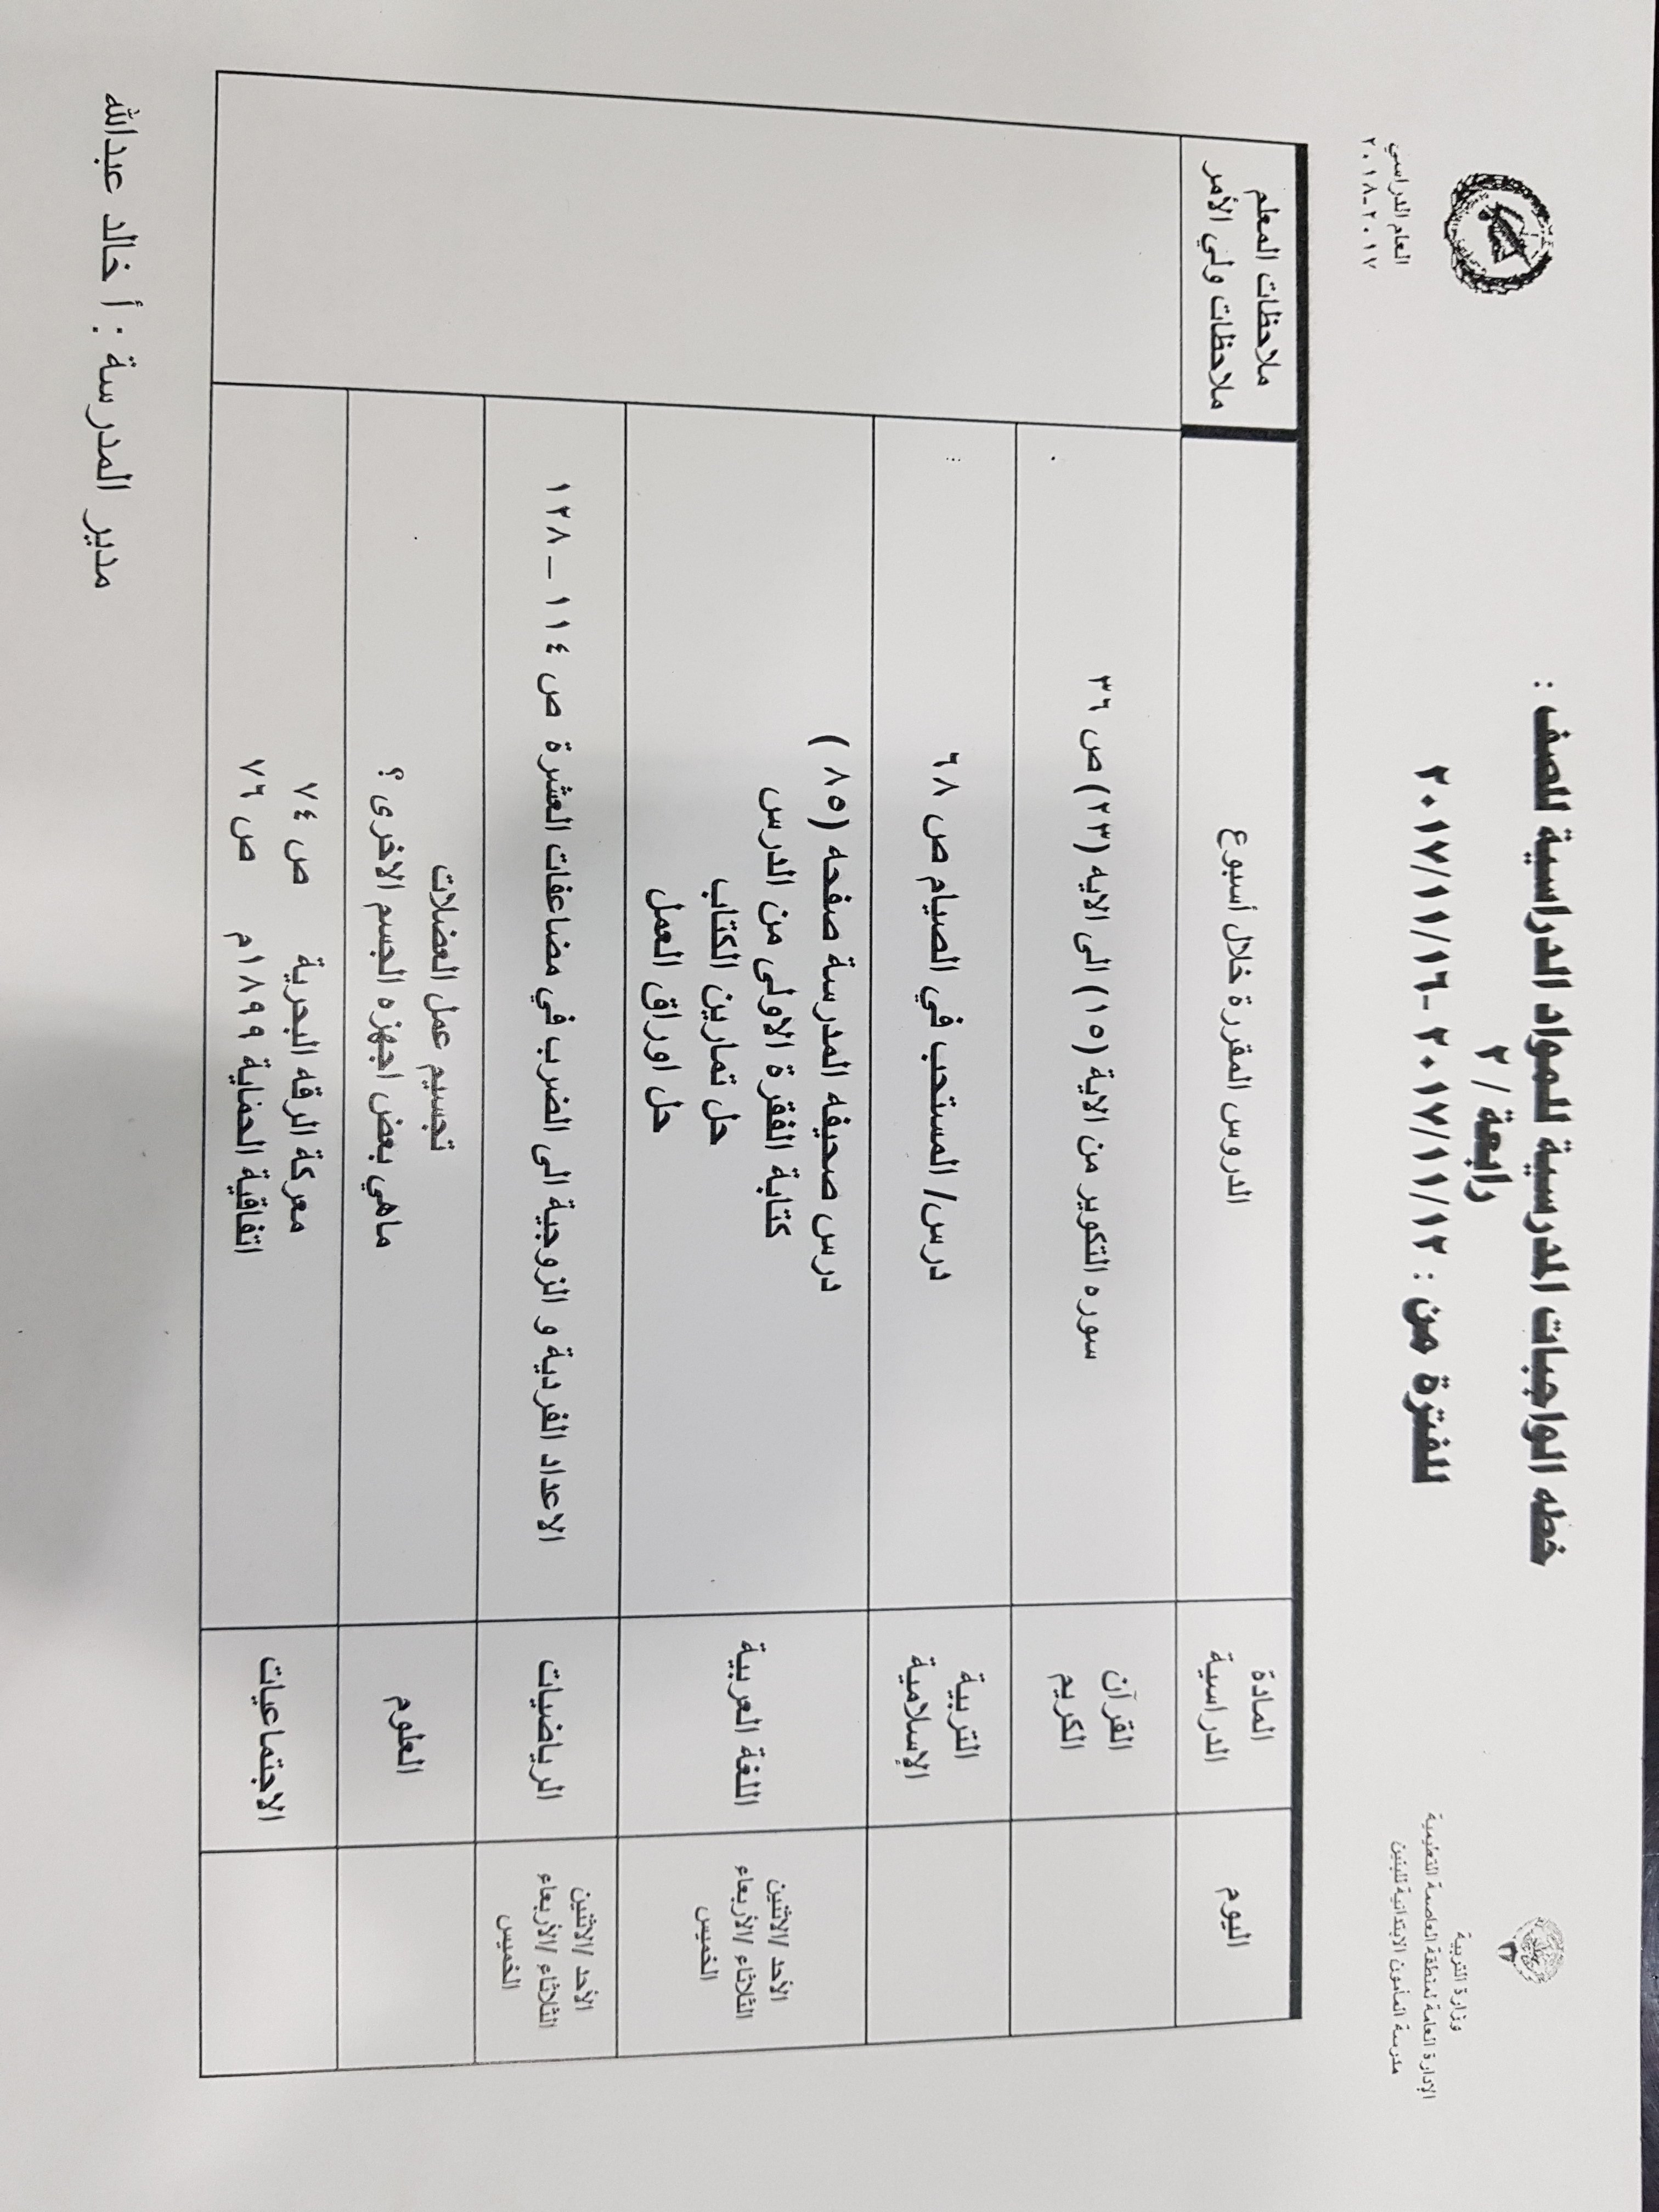 وزارة التربية
الإدارة العامة لمنطقة العاصمة التعليمية
مدرسة المأمون الابتدائية للبنين
خطه الواجبات المدرسية للمواد الدراسية للصف :
رابعة / ٢
للفترة من : ٢٠١٧/١١/١٢ - ٢٠١٧/١١/١٦
العام الدراسي
٢٠١٧-٢٠١٨
اليوم
المادة
الدراسية
الدروس المقررة خلال أسبوع
ملاحظات المعلم
ملاحظات ولي الأمر
القرآن
الكريم
سوره التكوير من الاية (١٥) الى الايه (٢٣) ص ٣٦
التربية
الإسلامية
درس/ المستحب في الصيام ص ٦٨
الأحد /الاثنين
الثلاثاء /الأربعاء
الخميس
اللغة العربية
درس صحيفه المدرسة صفحه (٨٥ )
كتابة الفقرة الاولى من الدرس
حل تمارين الكتاب
حل اوراق العمل
الأحد /الاثنين
الثلاثاء /الأربعاء
الخميس
الرياضيات
الاعداد الفردية و الزوجية الى الضرب في مضاعفات العشرة ص ١١٤ – ١٢٨
العلوم
تجسيم عمل العضلات
ماهي بعض اجهزه الجسم الاخرى ؟
الاجتماعيات
معركة الرقه البحرية ص ٧٤
اتفاقية الحماية ١٨٩٩م ص ٧٦
مدير المدرسة : أ خالد عبدالله